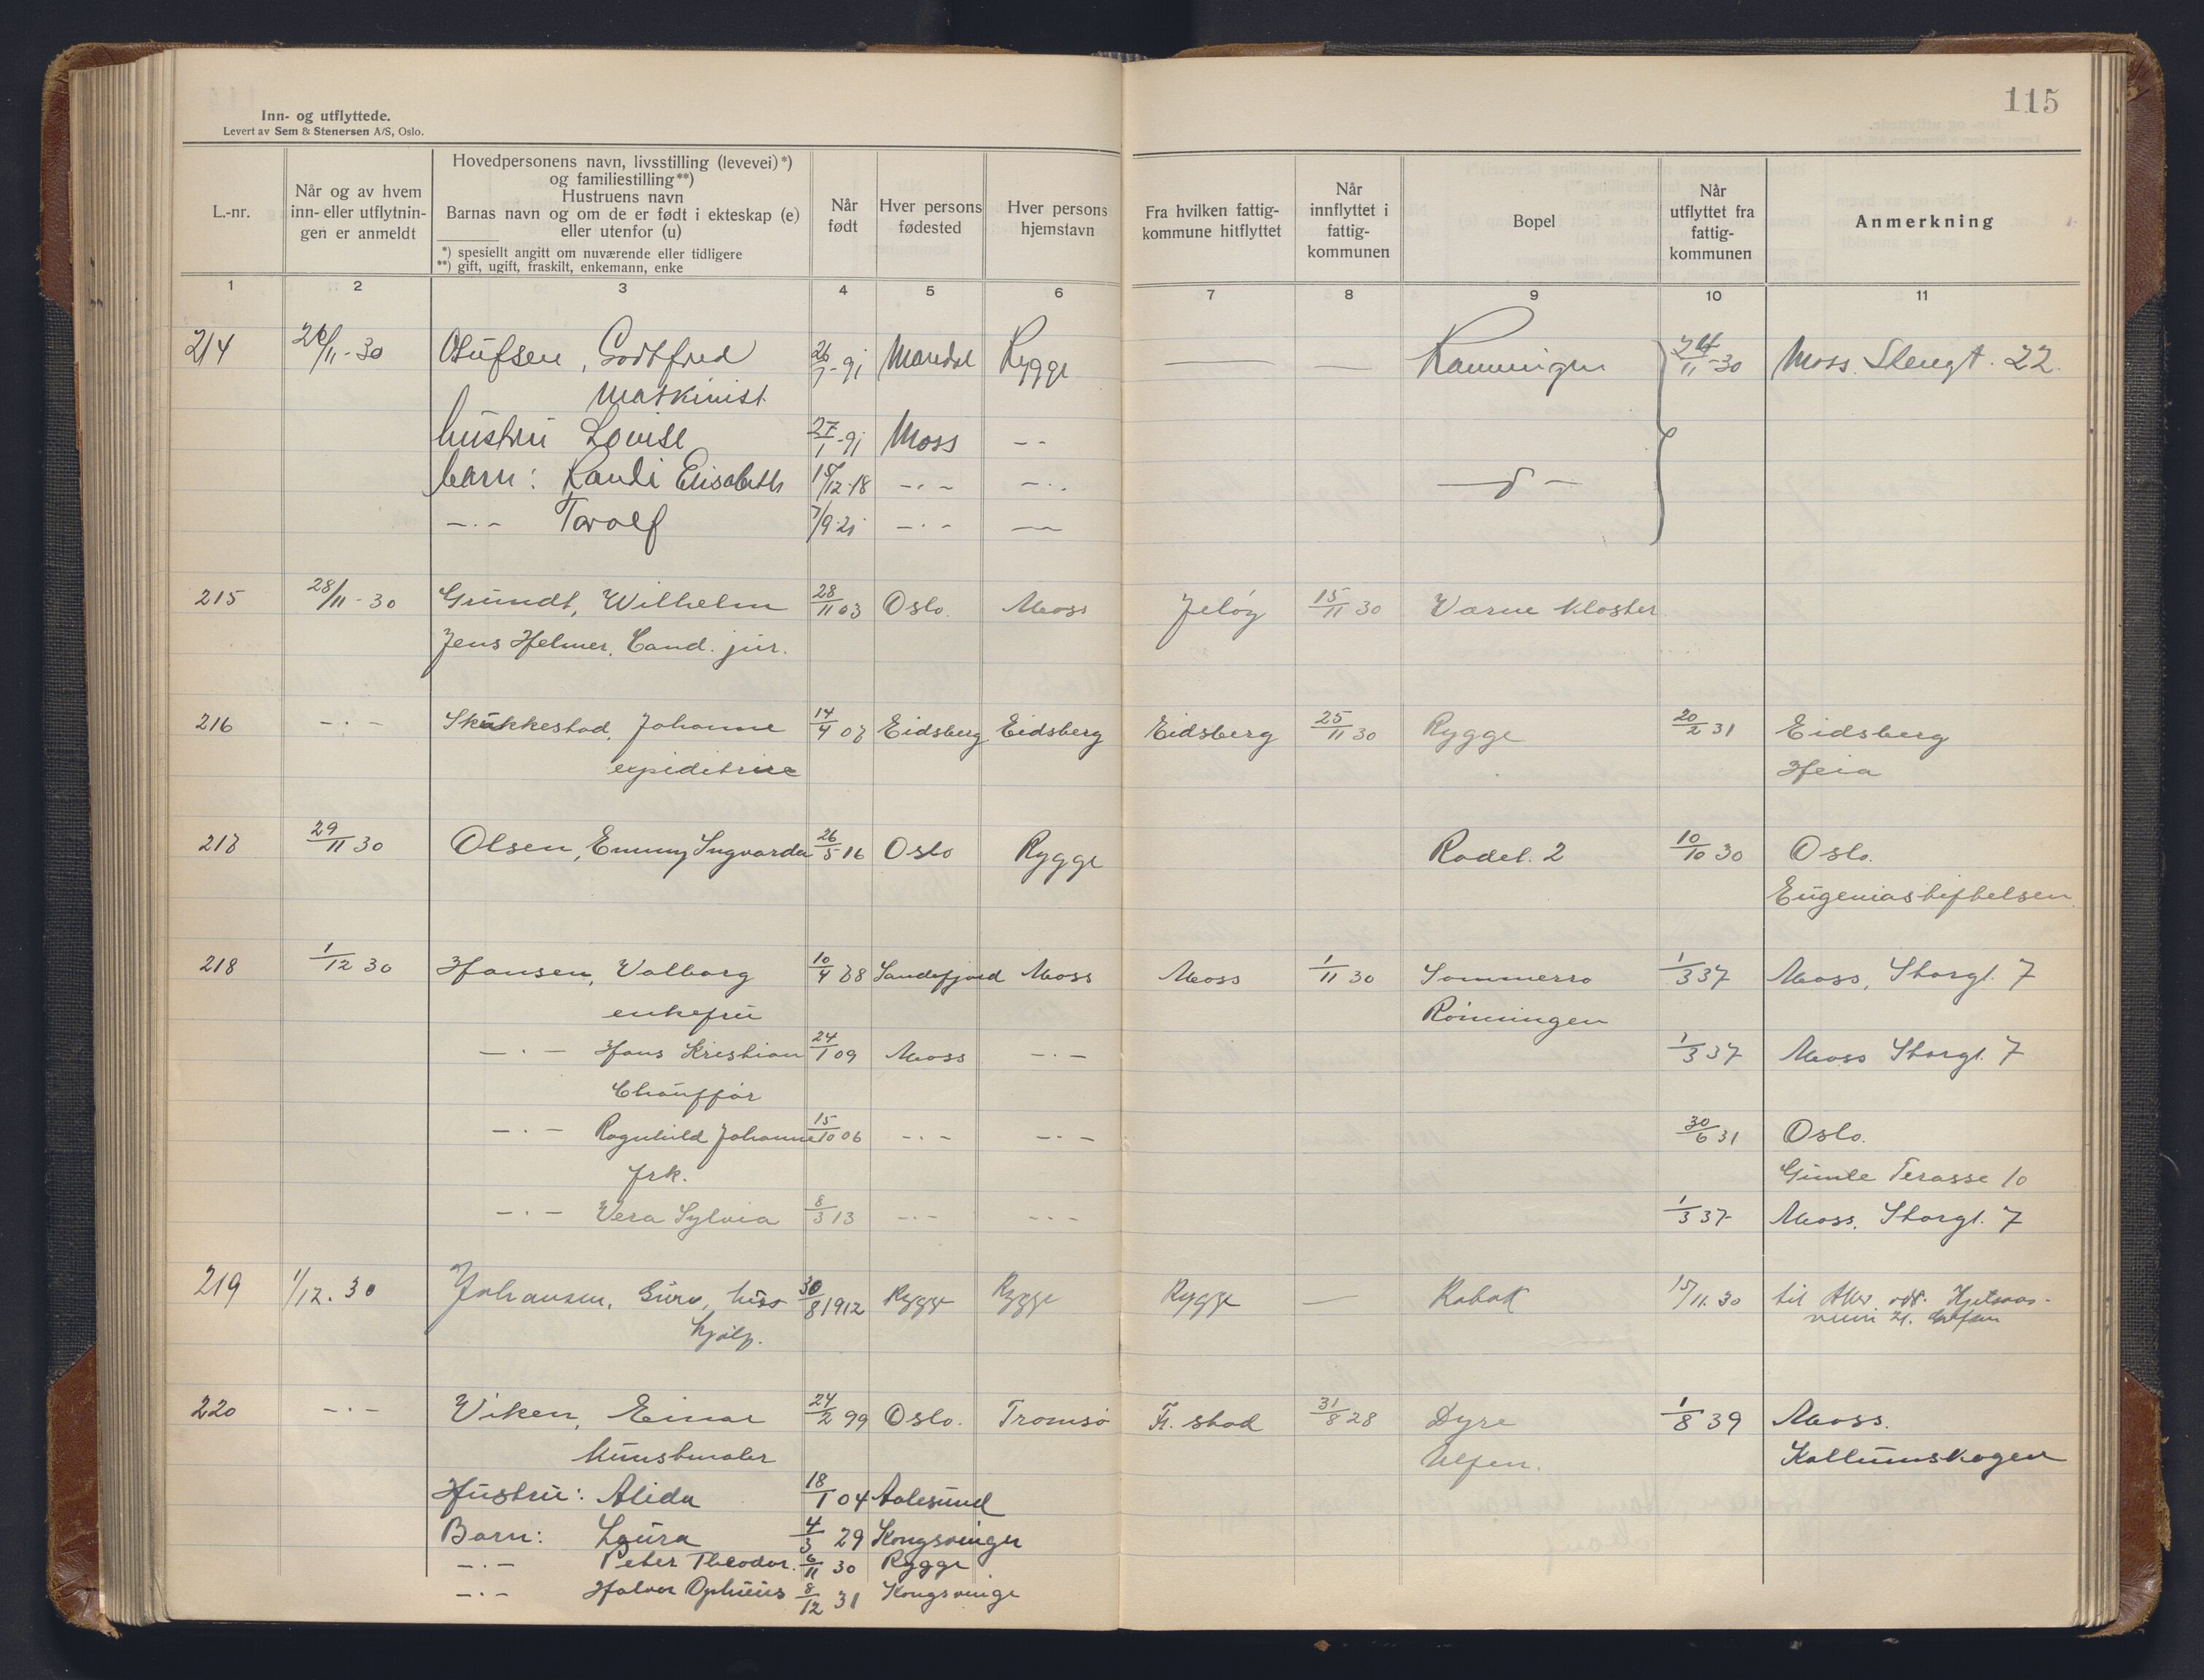 115
Inn- og utflyttede.
Levert av Sem & Stenersen A/S, Oslo.
L.-nr.
Når og av hvem
inn- eller utflytnin-
gen er anmeldt
Hovedpersonens navn, livsstilling (levevei)*)
og familiestilling**)
Hustruens navn
Barnas navn og om de er født i ekteskap (e)
eller utenfor (u)
*) spesielt angitt om nuværende eller tidligere
**) gift, ugift, fraskilt, enkemann, enke
Når
født
Hver persons
fødested
Hver persons
hjemstavn
Fra hvilken fattig-
kommune hitflyttet
Når
innflyttet i
fattig-
kommunen
Bopel
Når
utflyttet fra
fattig-
kommunen
Anmerkning
1 2 3 4 5 6 7 8 9 10 11
214 Olufsen, Godtfred 26/7-91 Mandal Rygge — — 24/11-30 Moss. 22.
Maskinist
hustru Louise 27/1-91 Moss - -
barn: Randi Elisabeth /12-18 -.- -.-
-.- Torolf 7/9-21 -.- —
215 28/11-30 Grundt, Wilhelm 28/11 03 Oslo. Moss Jeløy 15/11 30 Varne Kloster
Jens Helmer, Cand. jur.
216 -.- Skukkestad, Johanne 14/4 07 Eidsberg Eidsberg Eidsberg 25/11 30 Rygge 20/2 31 Eidsberg
expeditrise Heia
217 29/11 30 Olsen, Emmy Ingvarda 26/5 16 Oslo Rygge Rodel. 2 10/10 30 Oslo.
Eugeniastiftelsen
218 1/12 30 Hansen, Valborg 10/4 78 Sandefjord Moss Moss 1/11 30 Sommerro 1/3 37 Moss, Storgt. 7
enkefru Rönningen
-.- Hans Kristian 24/1 09 Moss -.- 1/3 37 Moss Storgt. 7
Chauffør
-.- Ragnhild Johanne 15/10 06 -.- -.- 30/6 31 Oslo.
frk. Gimle Terasse 10
-.- Vera Sylvia 8/3 13 -.- -.- 1/3 37 Moss. Storgt. 7
219 1/12. 30 Johansen, Guro, huss 30/8 1912 Rygge Rygge Rygge — Rabak 15/11. 30 til Aker
hjelp.
220 -.- Viken, Einar 24/2 99 Oslo. Tromsö Fr. stad 31/8 28 Dyre 1/8 39 Moss.
Kunstmaler Ulfen. Kallumskogen
Hustru: Alida 18/1 04 Aalesund
Barn: Laura 4/3 29 Kongsvinger
-.- Peter Theodor. 6/11 30 Rygge
-.- Halvor 8/12 31 Kongsvinge